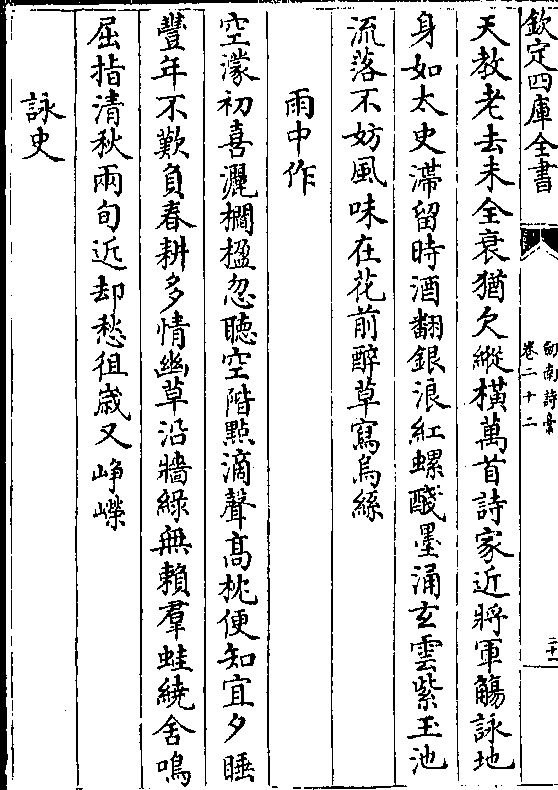 欽定四庫全書
劒南詩稾
卷二十二
二十一
天教老去未全衰猶欠縱橫萬首詩家近將軍觴詠地
身如太史滯留時酒翻銀浪紅螺醆墨涌玄雲紫玉池
流落不妨風味在花前醉草寫烏絲
雨中作
空濛初喜灑櫚楹忽聽空階點滴聲髙枕便知宜夕睡
豐年不歎負春耕多情幽草沿牆綠無賴羣蛙繞舍鳴
屈指清秋兩旬近却愁徂歳又崢嶸
詠史